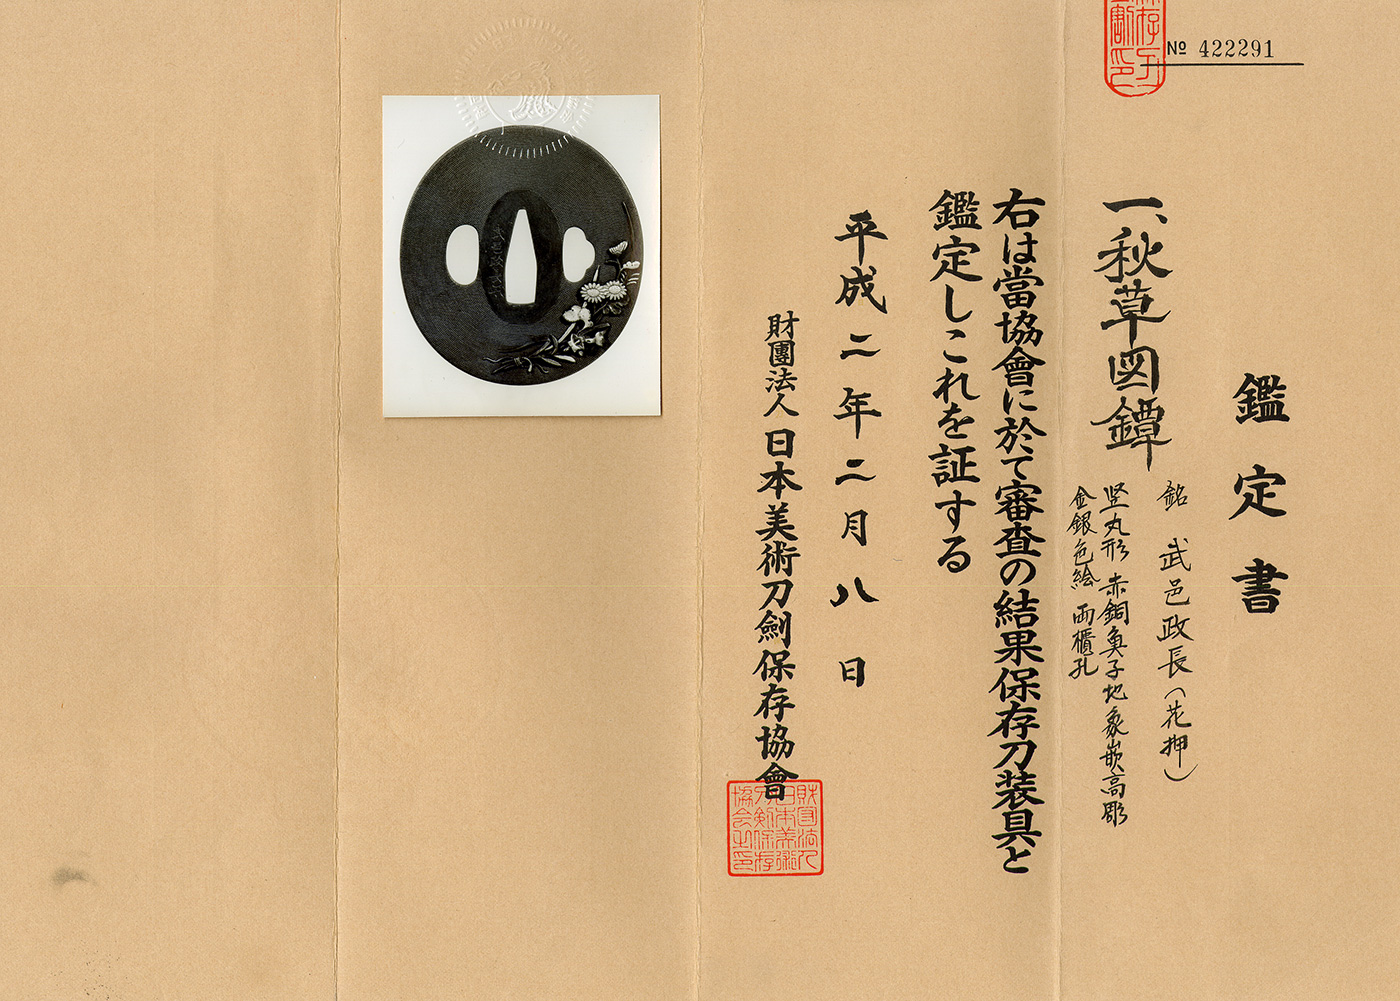 № 422291
鑑定書
一、秋草図鐔
銘 武邑政長(花押)
竪丸形 赤銅魚子地象嵌高彫
金銀色絵 両櫃孔
右は當協會に於て審査の結果保存刀装具と
鑑定しこれを証する
平成二年二月八日
財團法人日本美術刀劍保存協會
財団法人
日本美術
刀剣保存
協会之印